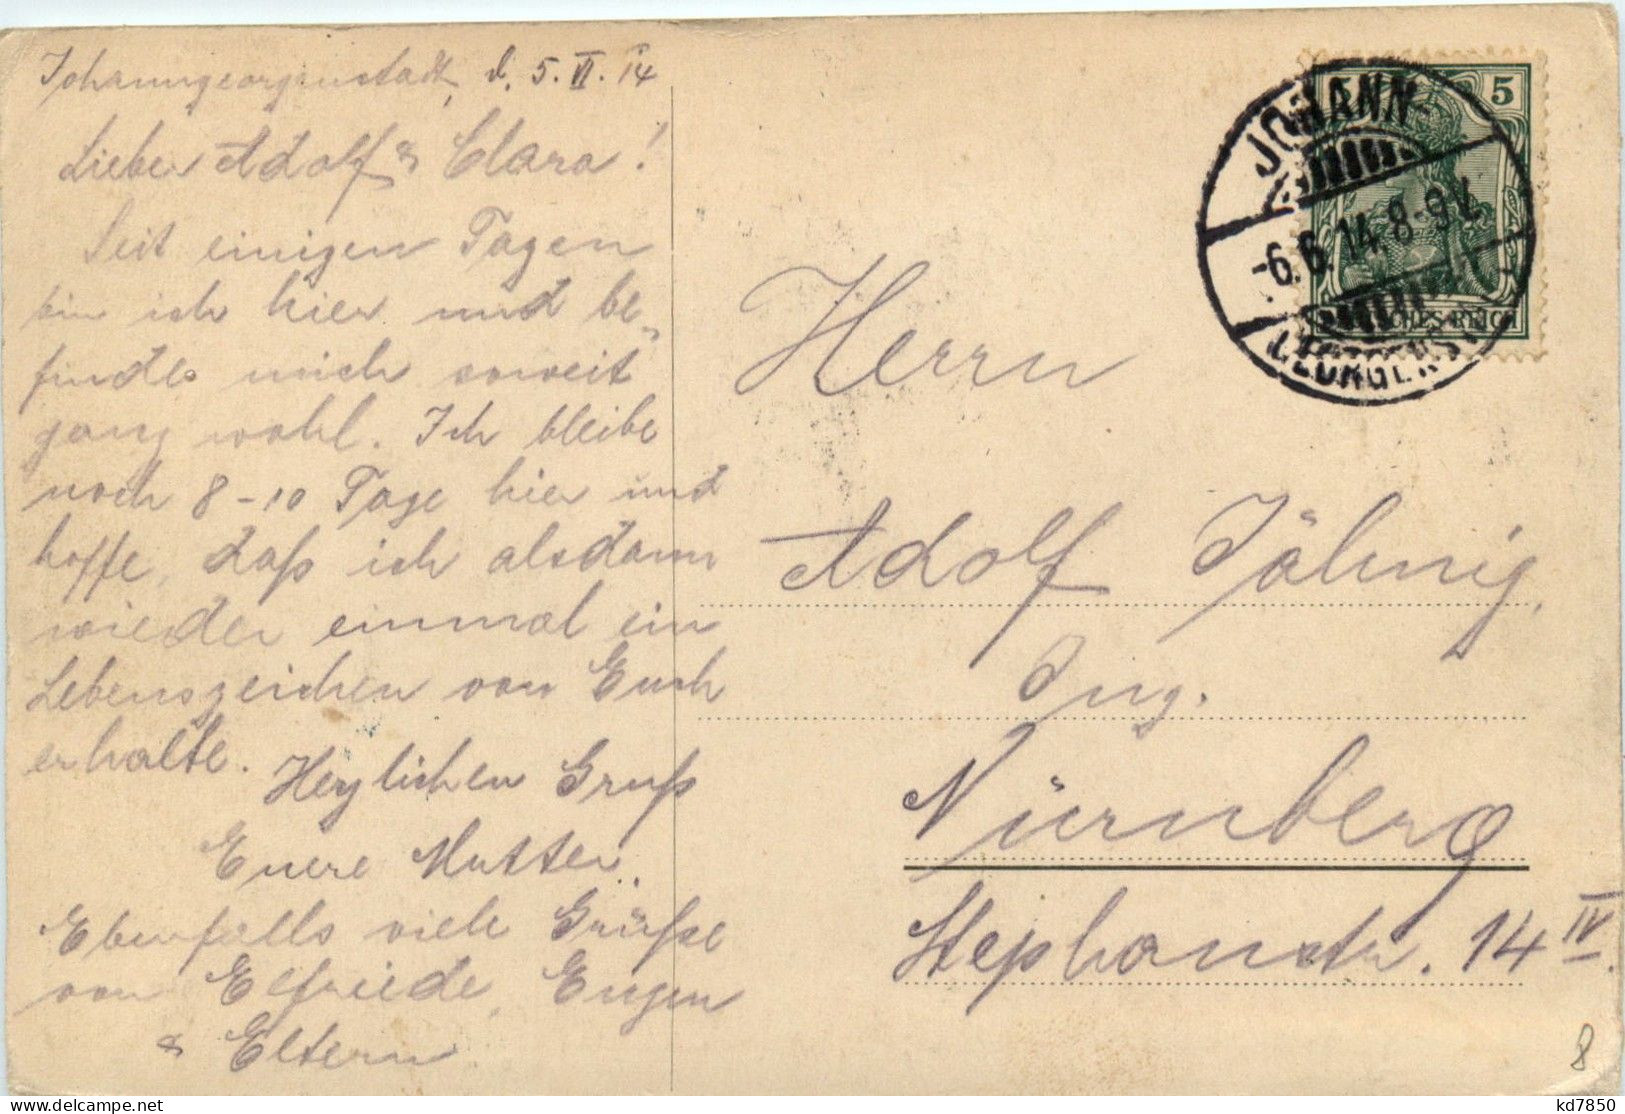 Johanngeorgenstadt, d. 5. VI. 14
Lieber Adolf & Clara!
Seit einigen Tagen
bin ich hier und be„
finde mich soweit
ganz wohl. Ich bleibe
noch 8-10 Tage hier und
hoffe, daß ich alsdann
wieder einmal ein
Lebenszeichen von Euch
erhalte.
Herzlichen Gruß
Euere Mutter.
Ebenfalls viele Grüße
von Elfriede, Eugen
& Eltern
5 5
DEUTSCHES REICH
JOHANN-
-6.6.14.8-9V.
GEORGENST
Herrn
Adolf Jähnig,
Ing.
Nürnberg
Stephanstr. 14 IV.
8
kd7850